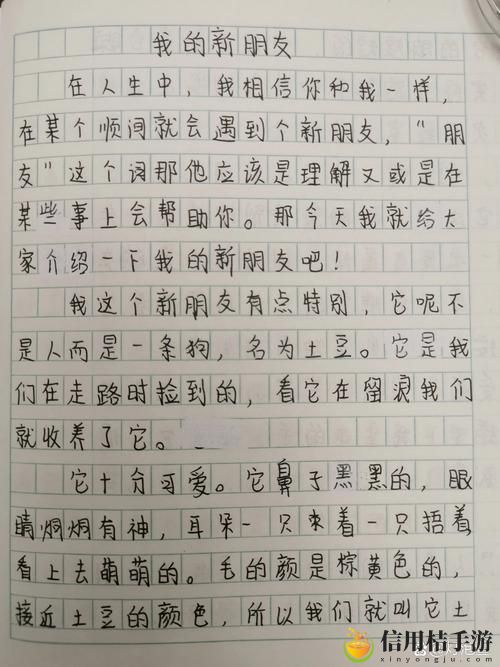 我的新朋友
在人生中，我相信你和我一样，
在某个顺间就会遇到个新朋友，“朋
友”这个词那他应该是理解又或是在
某些事上会帮助你。那今天我就给大
家介绍一下我的新朋友吧！
我这个新朋友有点特别，它呢不
是人而是一条狗，名为土豆。它是我
们在走路时捡到的，看它在留浪我们
就收养了它。
它十分可爱。它鼻子黑黑的，眼
睛炯炯有神，耳朵一只束着一只捂着
看上去萌萌的。毛的颜是棕黄色的，
接近土豆的颜色，所以我们就叫它土
信用桔手游
xinyongjy.com